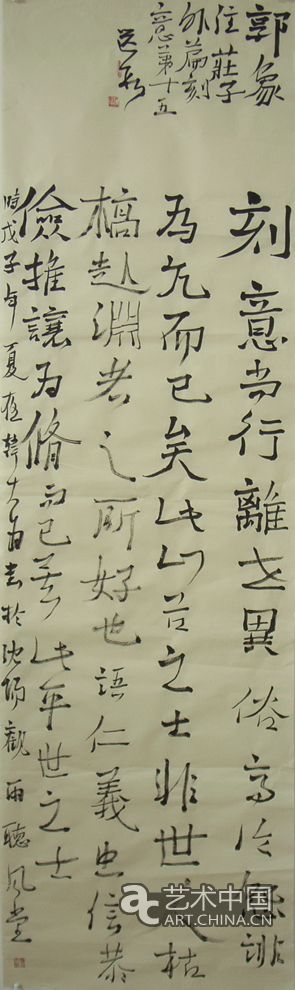 郭象
注莊子
外篇刻
意第十五
刻意尚行離世異俗高論怨誹
為亢而已矣此山谷之士非世之人枯
槁赴淵者之所好也語仁義忠信恭
儉推讓為脩而已矣此平世之士
時戊子年夏韓大為書於沈陽觀雨聽風堂
艺术中国
ART.CHINA.CN